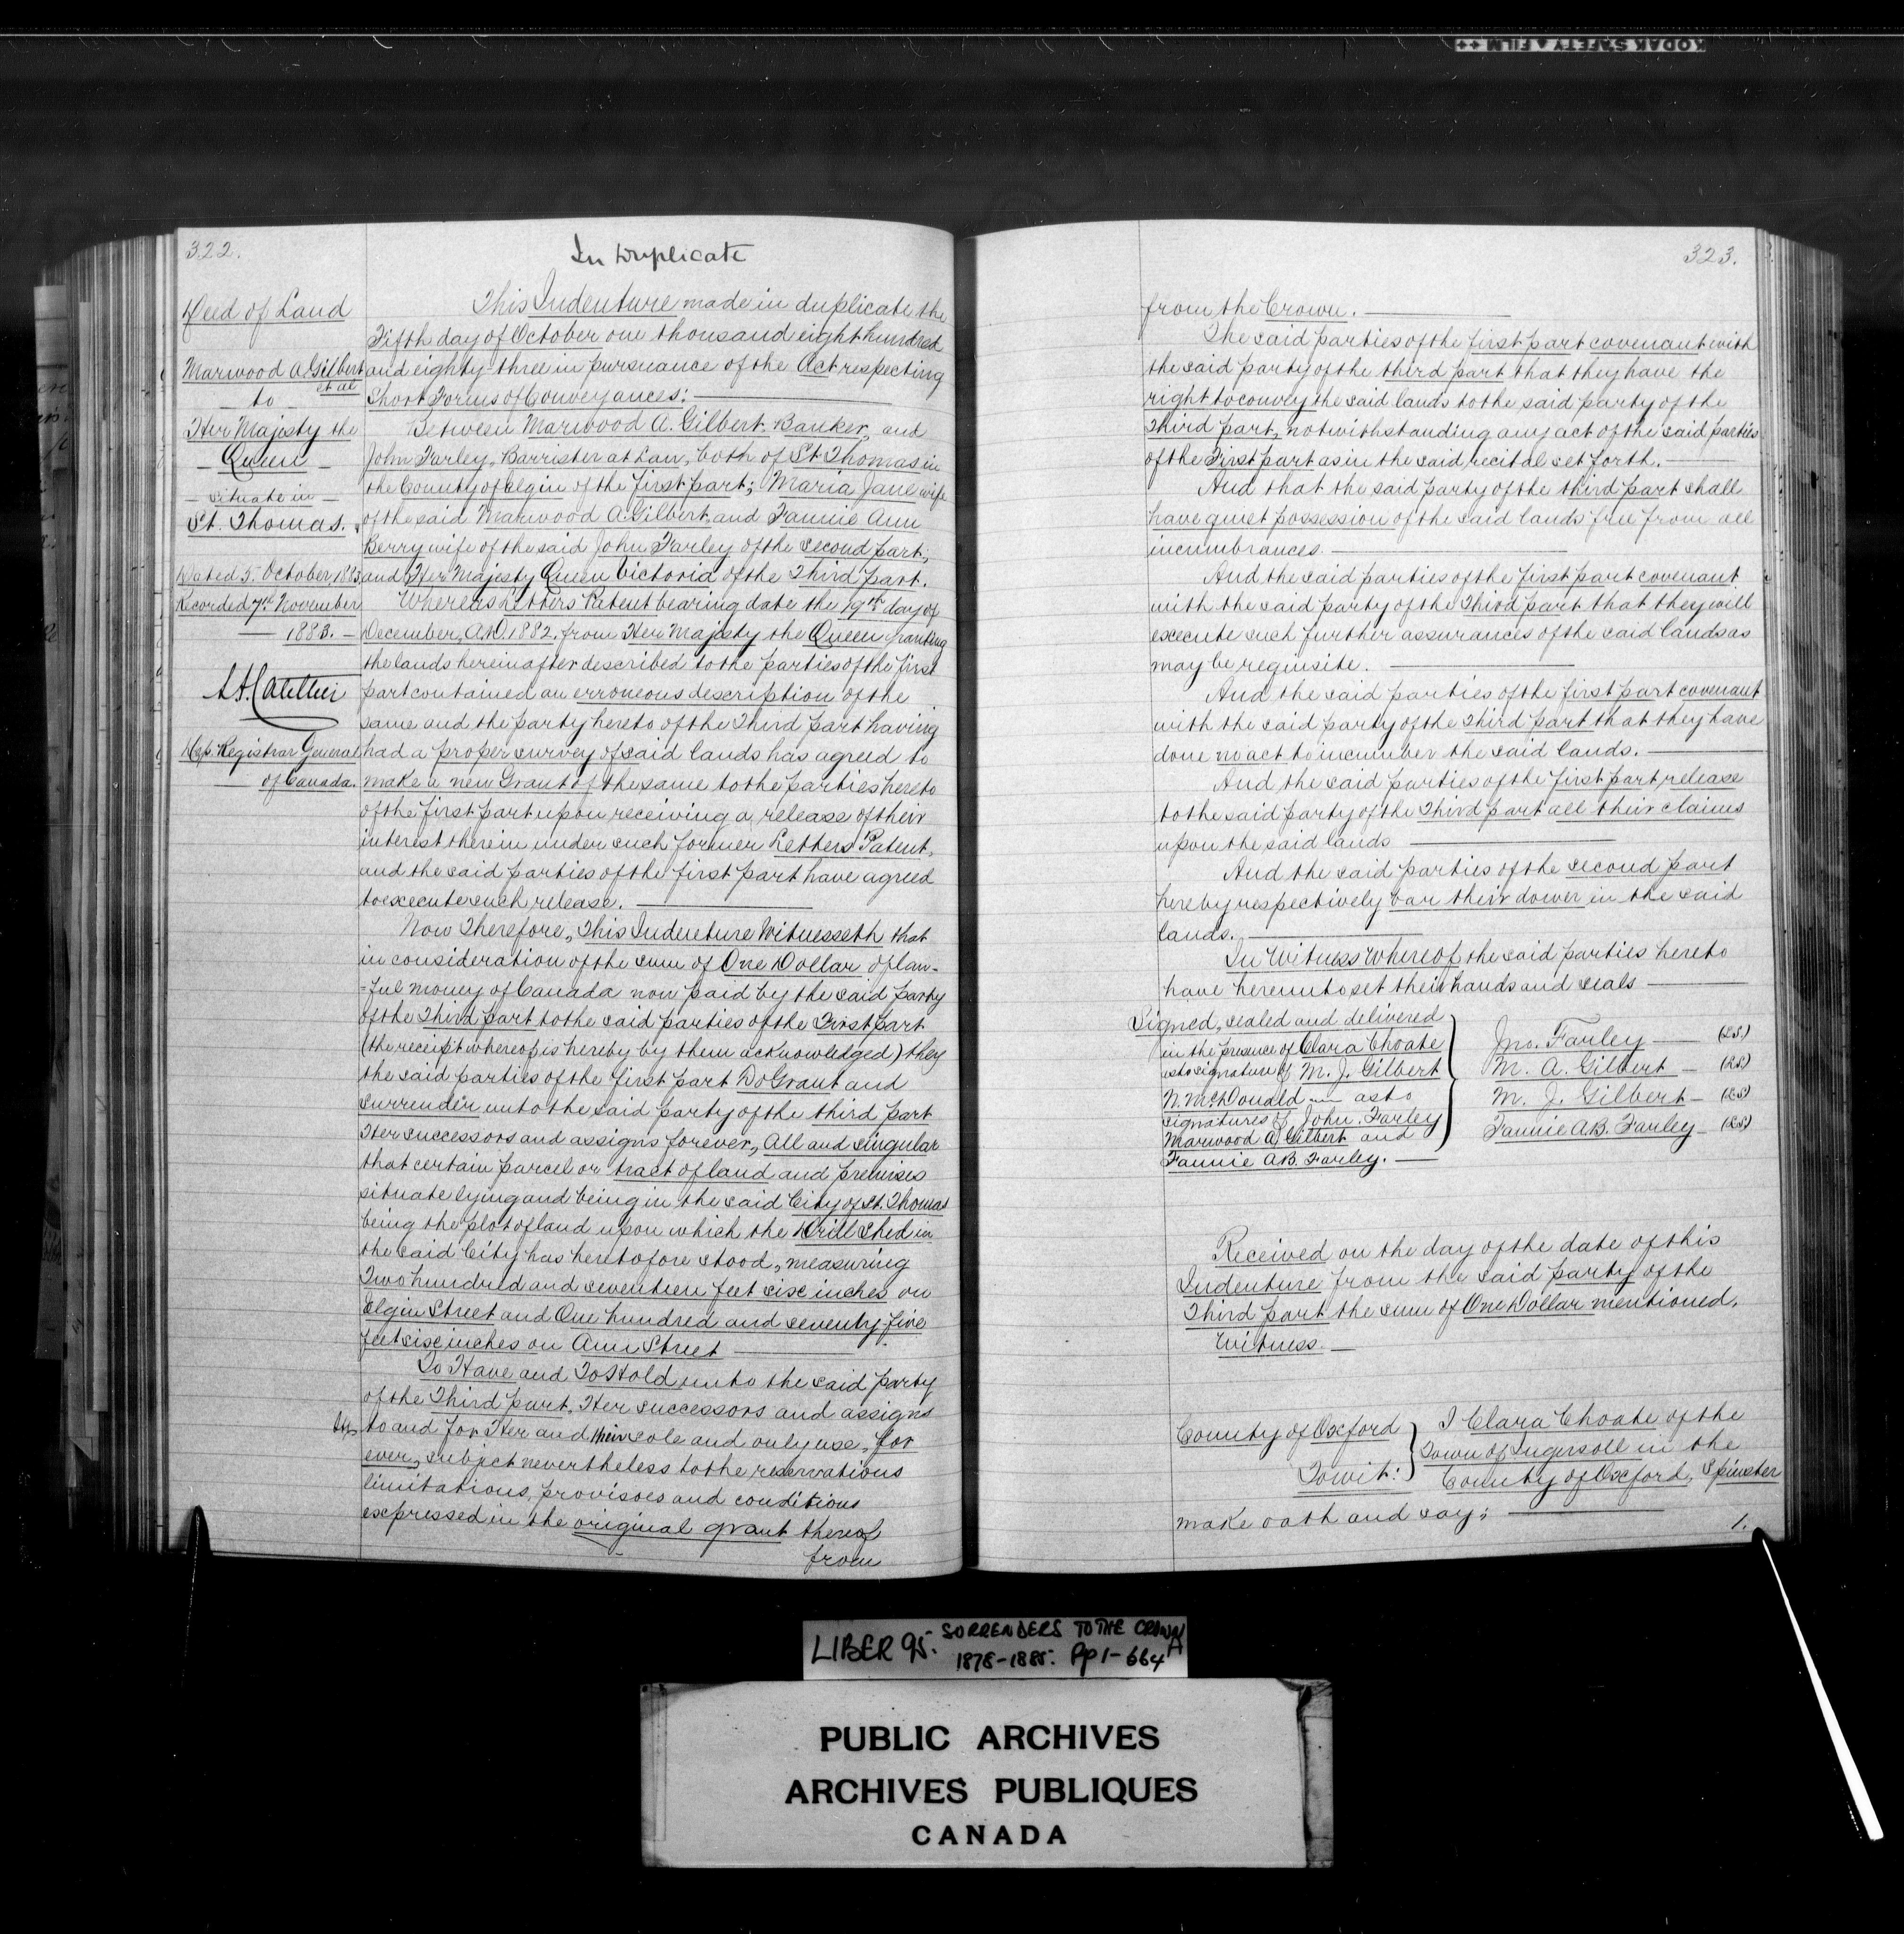 KODAK SAFETY FILM
322.
In Duplicate
Deed of Land
Marwood A Gilbert
et al
to
Her Majesty the
Queen
situate in
St. Thomas.
Dated 5. October 1883
Recorded 7th November
1883.
Dep. Registrar General
of Canada.
This Indenture made in duplicate the
Fifth day of October one thousand eight hundred
and eighty three in pursuance of the Act respecting
Short Forms of Conveyances:
Between Marwood A. Gilbert, Banker, and
John Farley, Barrister at Law, both of St Thomas in
the County of Elgin of the first part; Maria Jane wife
of the said Marwood A. Gilbert, and Fannie Ann
Berry wife of the said John Farley of the second part;
and Her Majesty Queen Victoria of the Third Part.
Whereas Letters Patent bearing date the 19th day of
December, A.D. 1882. from Her Majesty the Queen granting
the lands hereinafter described to the parties of the first
part contained an erroneous description of the
same and the party hereto of the Third part having
had a proper survey of said lands has agreed to
make a new Grant of the same to the parties hereto
of the first part upon receiving a release of their
interest therein under such former Letters Patent,
and the said parties of the first part have agreed
to execute such release.
Now Therefore, This Indenture Witnesseth that
in consideration of the sum of One Dollar of law-
=ful money of Canada now paid by the said party
of the Third part to the said parties of the First part
(the receipt whereof is hereby by them acknowledged) they
the said parties of the first part Do Grant and
surrender unto the said party of the third part
Her successors and assigns forever, All and singular
that certain parcel or tract of land and premises
situate lying and being in the said City of St. Thomas
being the plot of land upon which the Drill Shed in
the said City has heretofore stood, measuring
Two hundred and seventeen feet six inches on
Elgin Street and One hundred and seventy five
feet six inches on Ann Street
To Have and To Hold unto the said party
of the Third part. Her successors and assigns
to and for Her and their sole and only use, for
ever, subject nevertheless to the reservations
limitations, provisoes and conditions
expressed in the original grant thereof
from
323.
from the Crown.
The said parties of the first part covenant with
the said party of the third part that they have the
right to convey the said lands to the said party of the
Third part, notwithstanding any act of the said parties
of the First part as in the said recital set forth.
And that the said party of the third part shall
have quiet possession of the said lands free from all
incumbrances.
And the said parties of the first part covenant
with the said party of the Third part that they will
execute such further assurances of the said lands as
may be requisite.
And the said parties of the first part covenant
with the said party of the Third part that they have
done no act to incumber the said lands.
And the said parties of the first part release
to the said party of the Third part all their claims
upon the said lands
And the said parties of the second part
hereby respectively bar their dower in the said
lands.
In Witness Whereof the said parties hereto
have hereunto set their hands and seals
Signed, sealed and delivered
in the presence of Clara Choate
as to signature of M. J. Gilbert
N. McDonald as to
signatures of John. Farley
Marwood A Gilbert and
Fannie A B. Farley.
Jno. Farley (LS.)
M. A. Gilbert (LS.)
M. J. Gilbert (LS)
Fannie A B. Farley (LS.)
Received on the day of the date of this
Indenture from the said party of the
Third part the sum of One Dollar mentioned.
Witness.
County of Oxford
To wit:
I Clara Choate of the
Town of Ingersoll in the
County of Oxford, Spinster
make oath and say:
1.
LIBER 95. SURRENDERS TO THE CROWN
1878-1885. Pp 1-664
PUBLIC ARCHIVES
ARCHIVES PUBLIQUES
CANADA